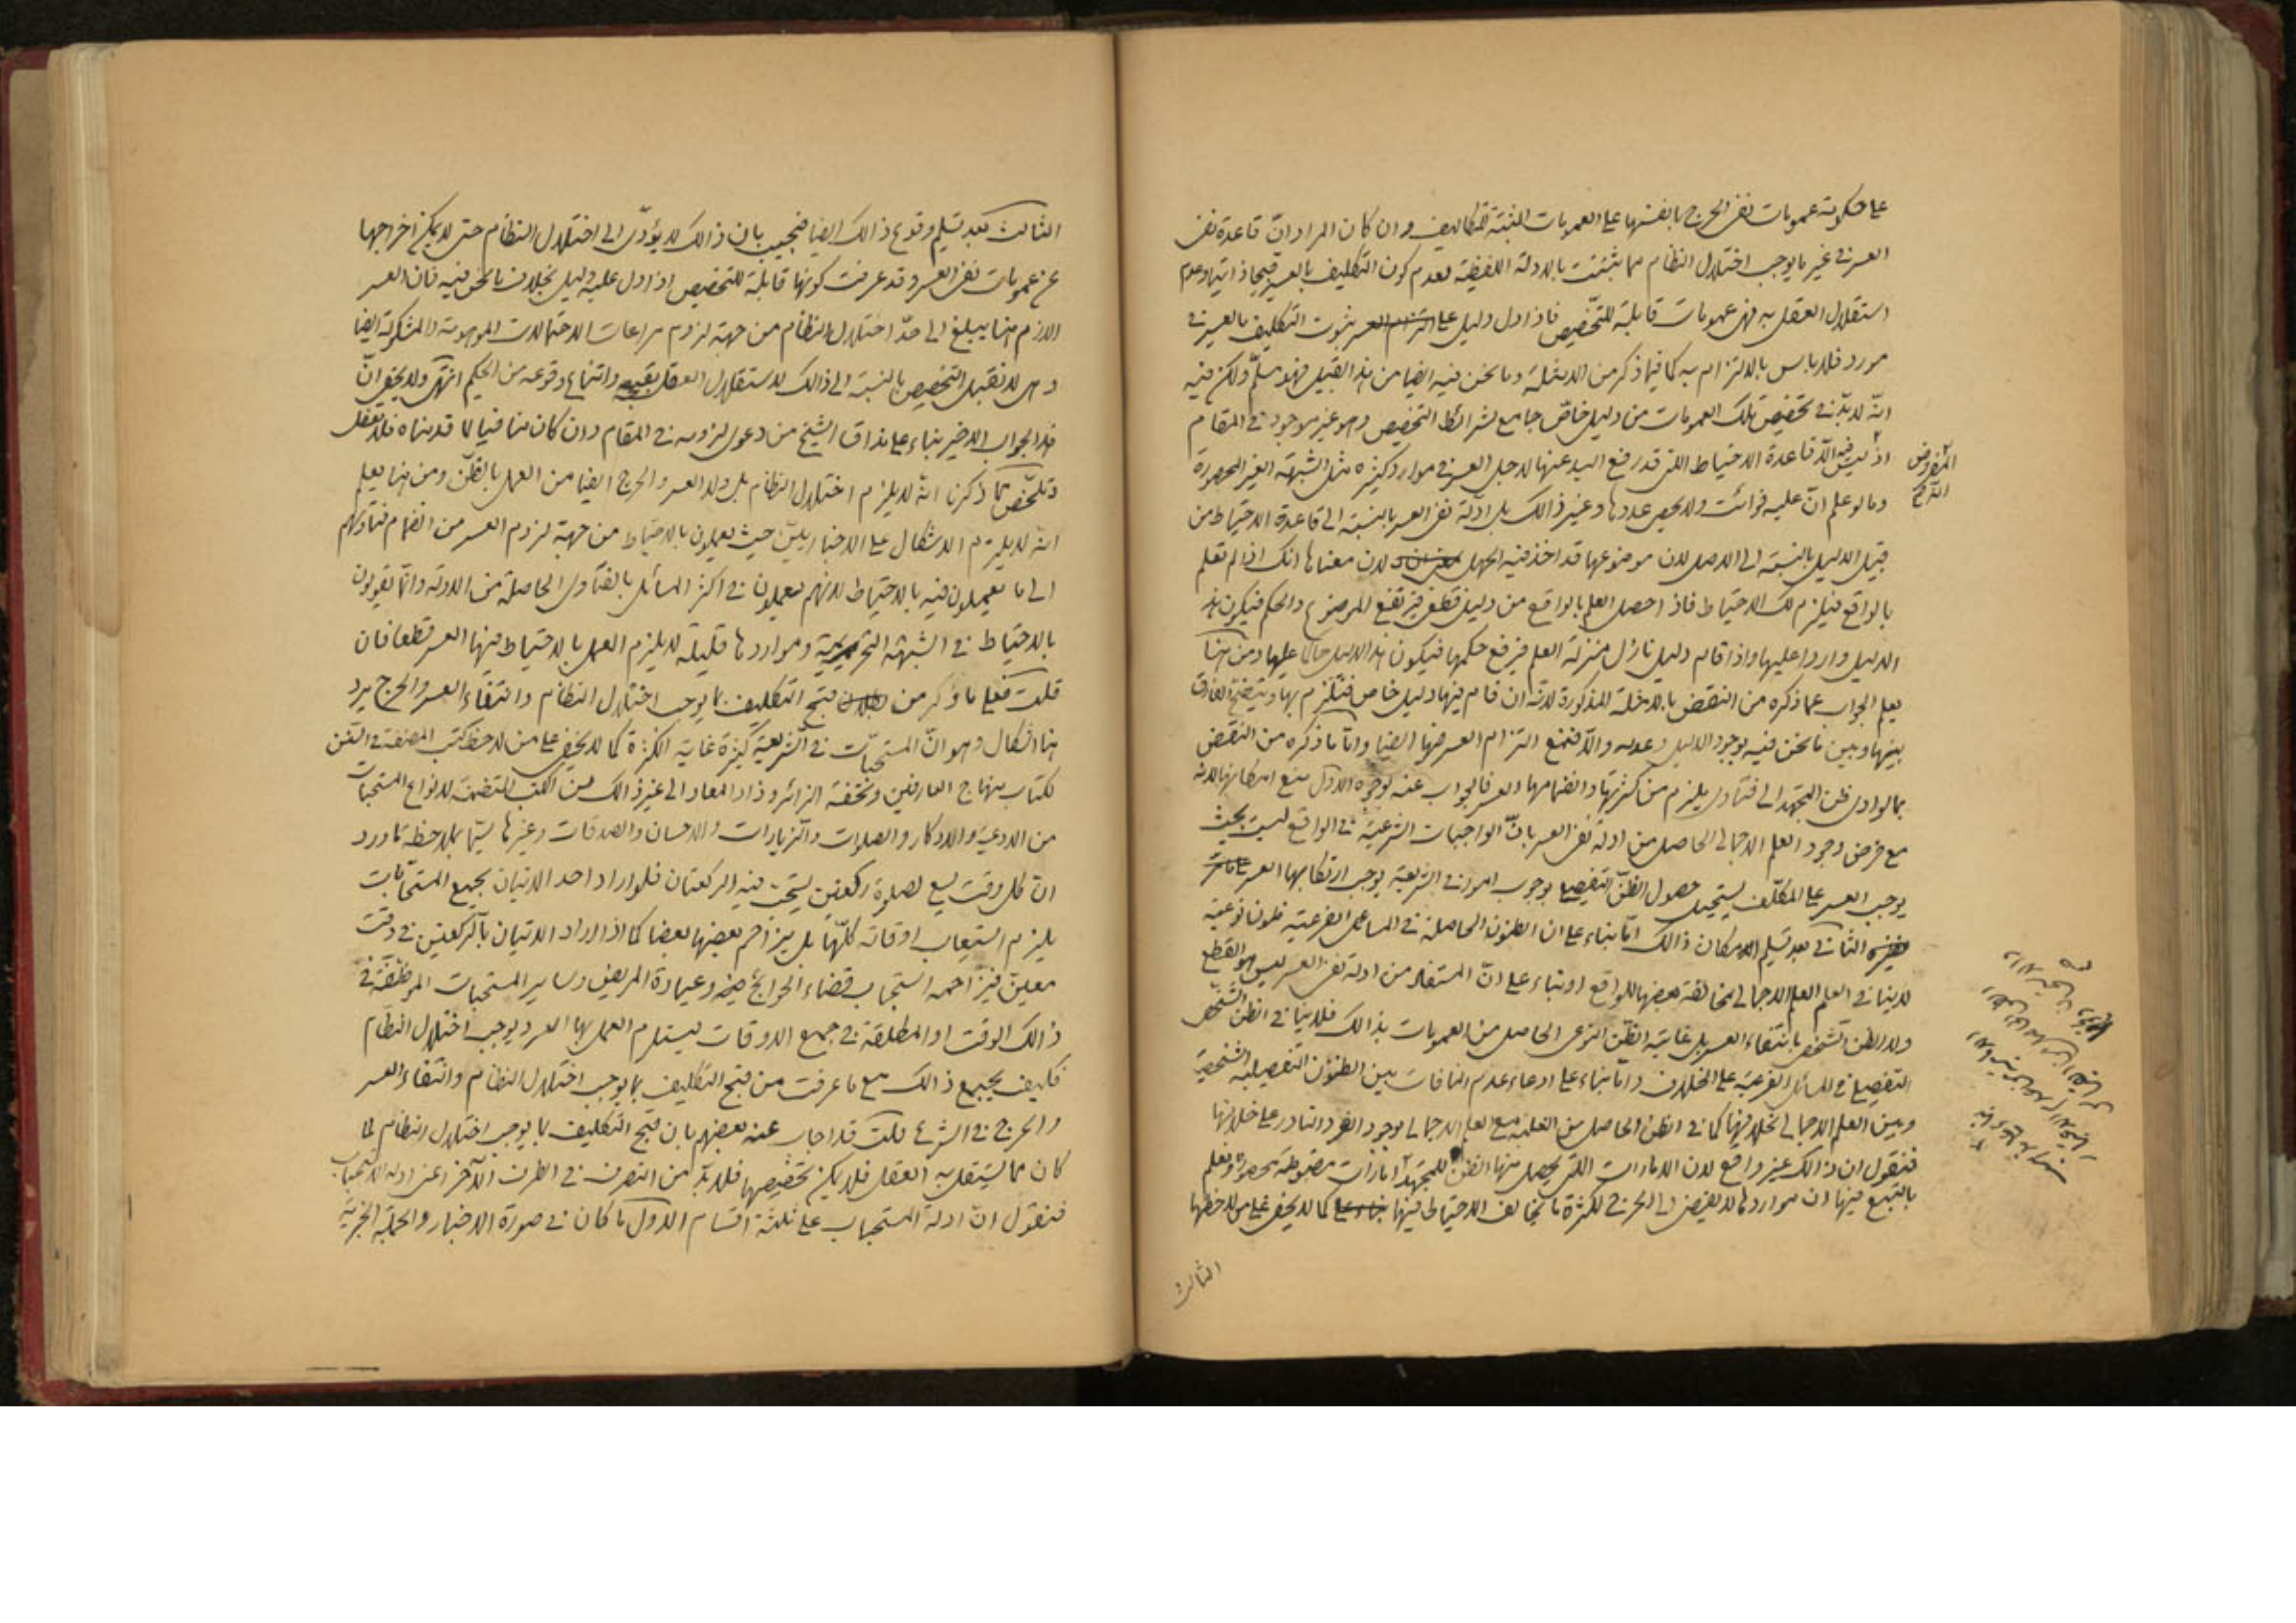 على حكومة عمومات نفى الحرج بانفسها على العمومات المثبتة للتكاليف وان كان المراد ان قاعدة نفى
العسر فى غير ما يوجب اختلال النظام مما يثبت بالادلة اللفظية لعدم كون التكليف بالعسر قبيحا ذاتيا وعدم
استقلال العقل به فهى عمومات قابلة للتخصيص فاذا دل دليل على ثبوت التكليف بالعسر فى
مورد فلا باس بالالتزام به كما فيما ذكر من الامثلة وما نحن فيه ايضا من هذا القبيل فهو مسلّم ولكن فيه
انّه لا بدّ فى تخصيص تلك العمومات من دليل خاصّ جامع لشرائط التخصيص وهو غير موجود فى المقام
اذ ليس فيه الّا قاعدة الاحتياط التى قد رفع اليد عنها لاجل العسر فى موارد كثيرة مثل الشبهة الغير المحصورة
وما لو علم انّ عليه فوائت ولا يحصى عددها وغير ذالك بل ادلّة نفى العسر بالنسبة الى قاعدة الاحتياط من
قبيل الدليل بالنسبة الى الاصل لان موضوعها قد اخذ فيه الجهل لان معناها انك اذا لم تعلم
بالواقع فيلزم لك الاحتياط فاذا حصل العلم بالواقع من دليل قطعى فيرتفع الموضوع والحكم فيكون هذا
الدليل واردا عليها واذا قام دليل نازل منزلة العلم فيرفع حكمها فيكون هذا الدليل حاكما عليها ومن هنا
يعلم الجواب عما ذكره من النقض بالامثلة المذكورة لانّه ان قام فيها دليل خاص فنلتزم بها ويتضح الفارق
بينها وبين ما نحن فيه بوجود الدليل وعدمه والّا فنمنع التزام العسر فيها ايضا وامّا ما ذكره من النقض
بما لو ادى ظن المجتهد الى فتاوى يلزم من كثرتها وانضمامها العسر فالجواب عنه بوجوه الاول منع امكانها لانه
مع فرض وجود العلم الاجمالى الحاصل من ادلة نفى العسر بانّ الواجبات الشرعيّة فى الواقع ليست بحيث
يوجب العسر على المكلّف يستحيل حصول الظنّ التفصيلى بوجوب امور فى الشريعة يوجب ارتكابها العسر
الثانى بعد تسليم امكان ذالك امّا بناء على ان الظنون الحاصلة فى المسائل الفرعية ظنون نوعية
لا ينافى العلم الاجمالى مخالفة بعضها للواقع او بناء على انّ المستفاد من ادلة نفى العسر ليس هو القطع
ولا الظن الشخصى بانتفاء العسر بل غايته الظنّ النوعى الحاصل من العمومات بذالك فلا ينافى الظن الشخصى
التفصيلى فى المسائل الفرعية على الخلاف وامّا بناء على ادعاء عدم المنافات بين الظنون التفصيلية الشخصية
وبين العلم الاجمالى بخلافها كما فى الظن الحاصل من الغلبة مع العلم الاجمالى بوجود الفرد النادر على خلافها
فنقول ان ذالك غير واقع لان الامارات التى يحصل منها الظن للمجتهد امارات مضبوطة محصورة ويعلم
بالتتبع فيها ان مواردها لا يفضى الى الحرج لكثرة ما يخالف الاحتياط فيها كما لا يخفى على من لاحظها
المفروض
الثالث
الثالث بعد تسليم وقوع ذالك ايضا فنجيب بان ذالك لا يؤدّى الى اختلال النظام حتى لا يمكن اخراجها
عن عمومات نفى العسر وقد عرفت كونها قابلة للتخصيص اذا دل عليه دليل بخلاف ما نحن فيه فان العسر
اللازم هنا يبلغ الى حدّ اختلال النظام من جهة لزوم مراعات الاحتمالات الموهومة والمشكوكة ايضا
وهى لا تقبل التخصيص بالنسبة الى ذالك لاستقلال العقل بقبحه وامتناع وقوعه من الحكيم انتهى ولا يخفى انّ
هذا الجواب الاخير بناء على مذاق الشيخ من دعوى لزومه فى المقام وان كان منافيا لما قدمناه فلا تغفل
وتلخّص ممّا ذكرنا انّه لا يلزم اختلال النظام بل ولا العسر والحرج ايضا من العمل بالظنّ ومن هنا يعلم
انّه لا يلزم الاشكال على الاخباريين حيث يعملون بالاحتياط من جهة لزوم العسر من انضمام فتاويهم
الى ما يعملون فيه بالاحتياط لانهم يعملون فى اكثر المسائل بالفتاوى الحاصلة من الادلة وانّما يقولون
بالاحتياط فى الشبهة التحريمية ومواردها قليلة لا يلزم العمل بالاحتياط فيها العسر قطعا فان
قلت فعلى ما ذكر من قبح التكليف بما يوجب اختلال النظام وانتفاء العسر والحرج يرد
هنا اشكال وهو انّ المستحبّات فى الشريعة كثيرة غاية الكثرة كما لا يخفى على من لاحظ كتب المصنفة فى الفن
ككتاب منهاج العارفين وتحفة الزائر وزاد المعاد الى غير ذالك من الكتب المتضمنة لانواع المستحبات
من الادعية والاذكار والصلوات والزيارات والاحسان والصدقات وغيرها سيّما بملاحظة ما ورد
انّ كل وقت يسع لصلوة ركعتين يستحبّ فيه الركعتان فلو اراد احد الاتيان بجميع المستحبّات
يلزم استيعاب اوقاته كلّها بل يزاحم بعضها بعضا كما اذا اراد الاتيان بالركعتين فى وقت
معين فيزاحمه استحباب قضاء الحوائج فيه وعيادة المريض وساير المستحبات الموظفة فى
ذالك الوقت او المطلقة فى جميع الاوقات فيستلزم العمل بها العسر ويوجب اختلال النظام
فكيف يجمع ذالك مع ما عرفت من قبح التكليف بما يوجب اختلال النظام وانتفاء العسر
والحرج فى الشرع قلت قد اجاب عنه بعضهم بان قبح التكليف بما يوجب اختلال النظام لما
كان مما يستقل به العقل فلا يمكن تخصيصها فلا بدّ من التصرف فى الطرف الآخر اعنى ادلة الاستحباب
فنقول انّ ادلة المستحباب على ثلثة اقسام الاول ما كان فى صورة الاخبار والجملة الخبرية